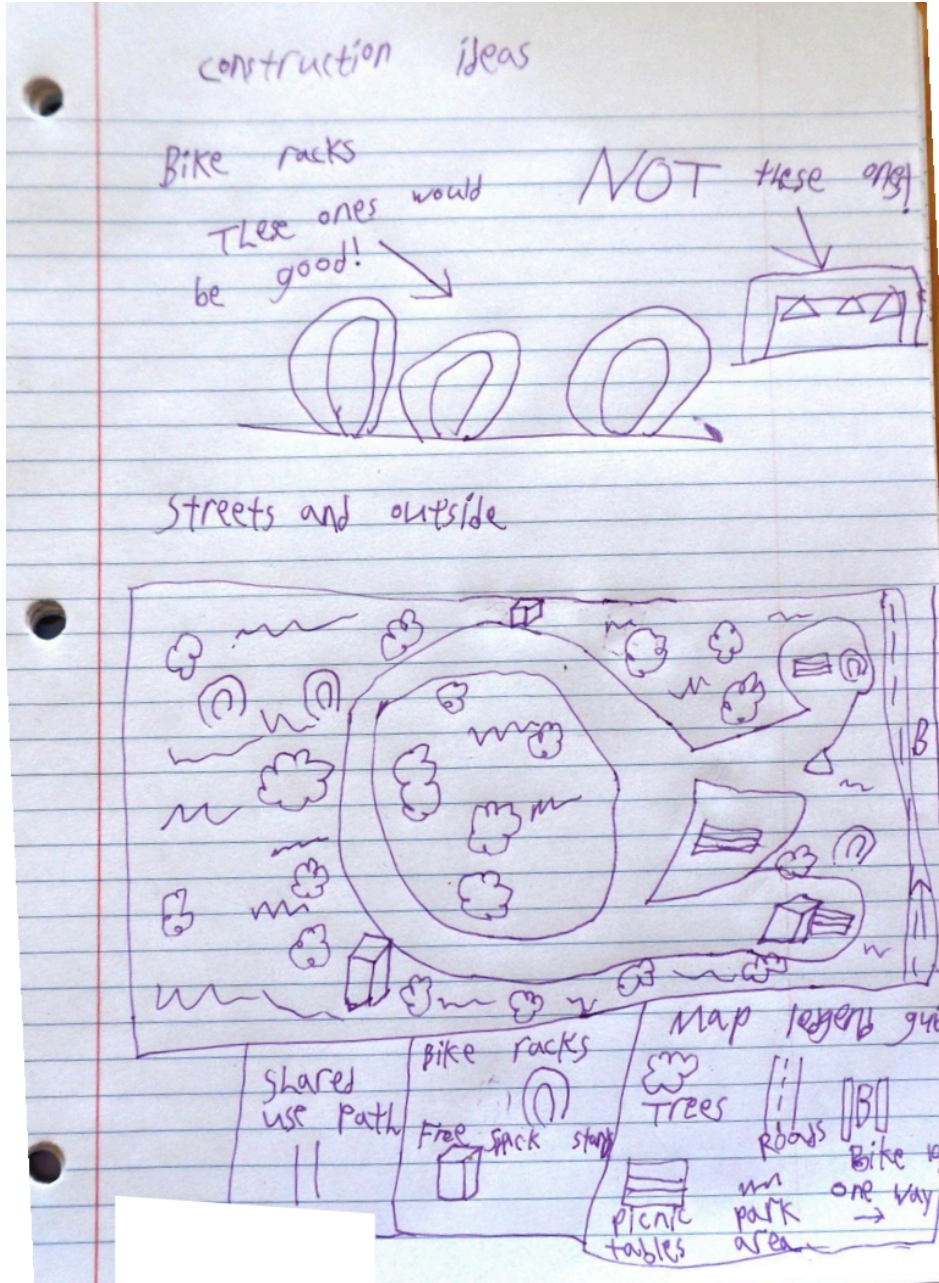 construction ideas
Bike racks
These ones would
be good!
NOT these ones!
Streets and outside
B
Map legend
Shared
use path
Bike racks
Free Snack stand
Trees
Roads
B
Bike
one way
picnic
tables
park
area